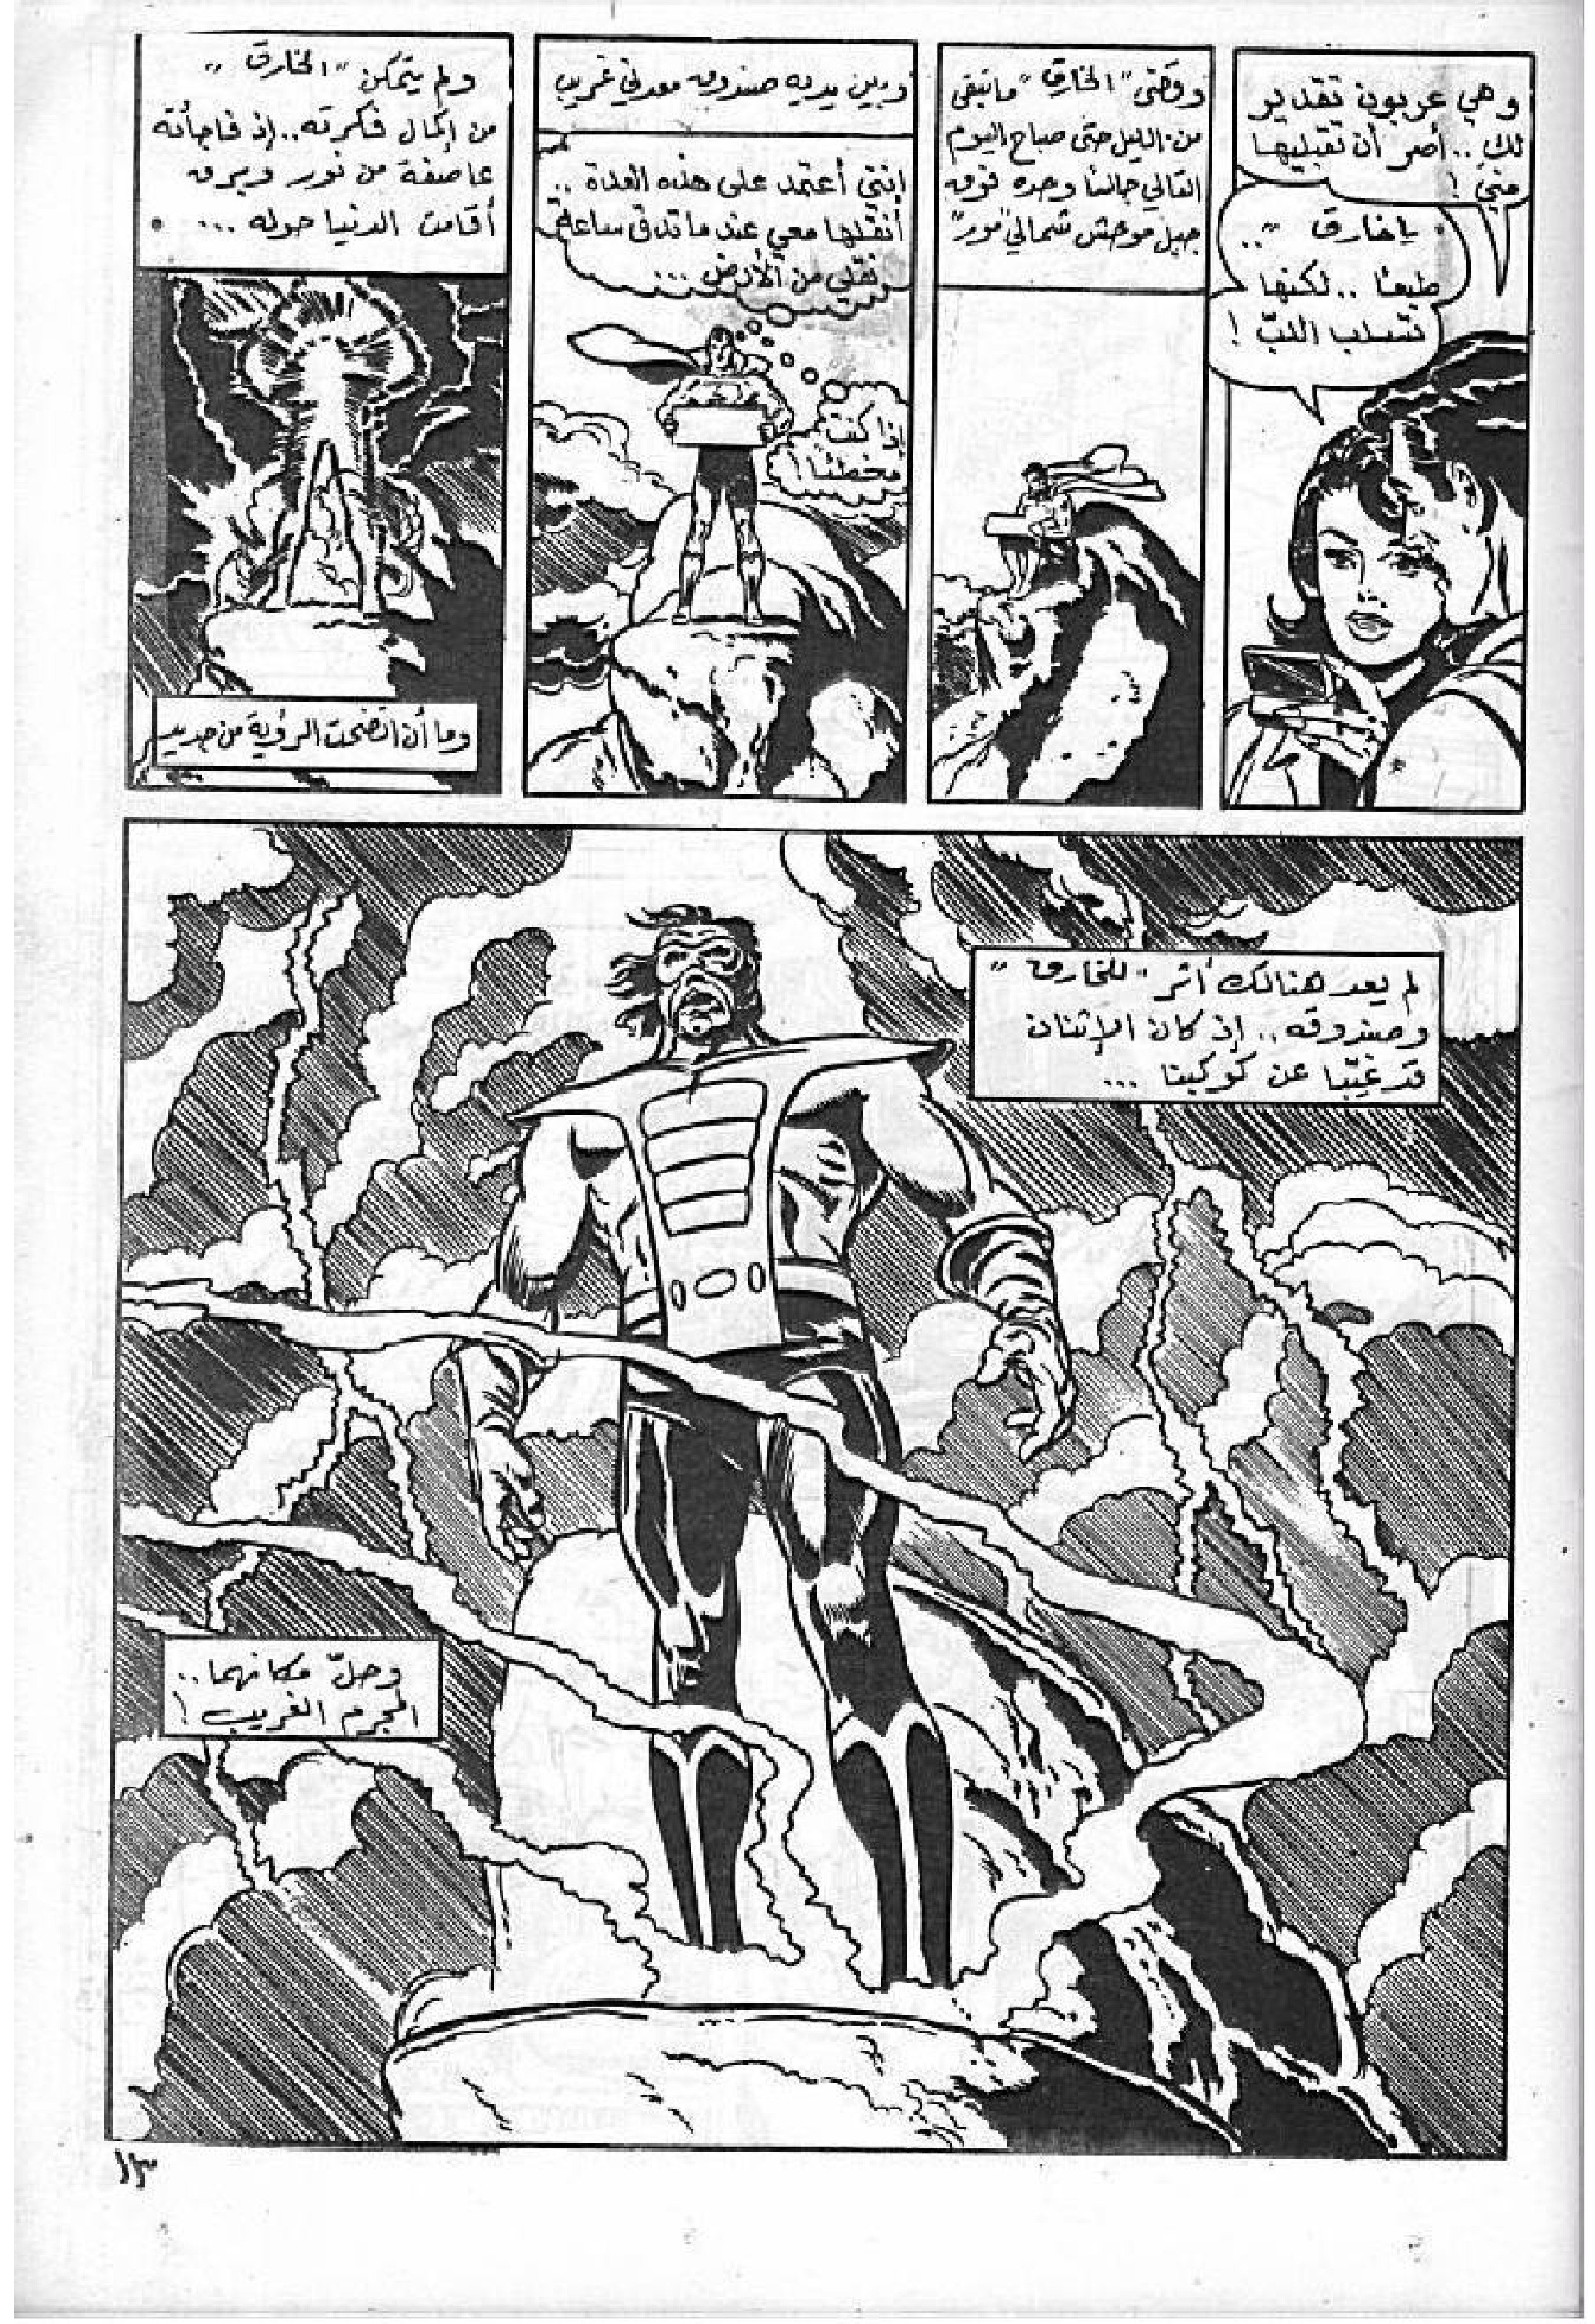 وهي عربون تقدير
لكِ .. أصر أن تقبليها
مني !
" يا خارق " ..
طبعًا .. لكنها
تسلب اللبّ !
وقضى " الخارق " ما تبقى
من الليل حتى صباح اليوم
التالي جالسًا وحده فوق
جبل موحش شمالي "مور"
وبين يديه صندوق معدني غريب
إنني أعتمد على هذه العلبة ..
أنقلها معي عندما تدق ساعة
نقلي من الأرض ....
إذا كنت
مخطئًا !
ولم يتمكن " الخارق "
من إكمال فكرته .. إذ فاجأته
عاصفة من نور وبرق
أقامت الدنيا حوله ... .
وما أن اتضحت الرؤية من جديد
لم يعد هنالك أثر " للخارق "
وصندوقه .. إذ كان الإثنان
قد غيّبا عن كوكبنا ...
وحلّ مكانهما ..
المجرم الغريب !
١٣